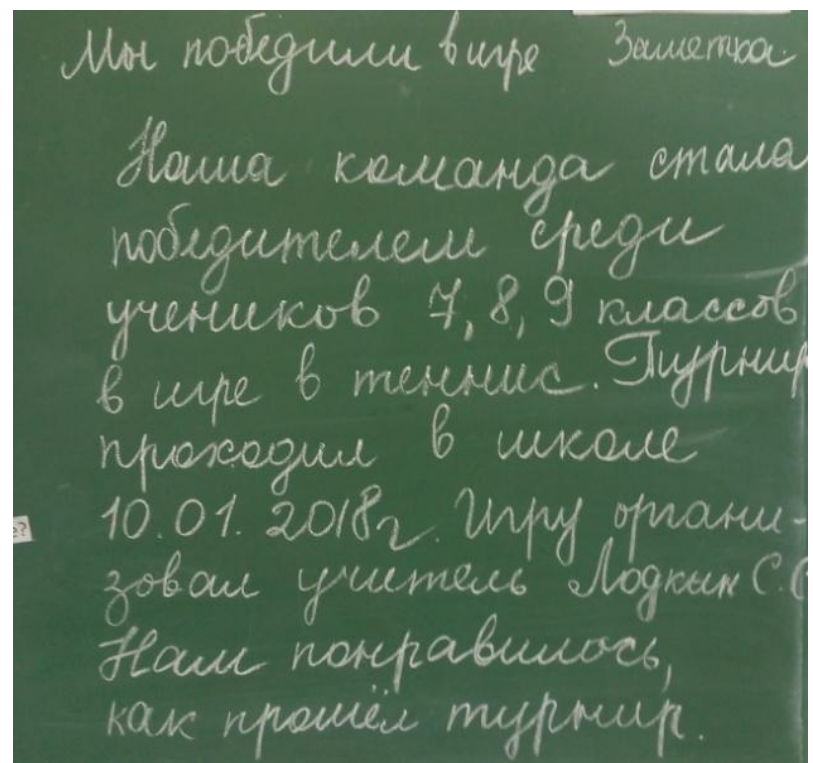 Мы победили в игре Заметка.
Наша команда стала
победителем среди
учеников 7, 8, 9 классов
в игре в теннис. Турнир
проходил в школе
10.01.2018г. Игру органи-
е?
зовал учитель Лодкин С.С
Нам понравилось,
как прошёл турнир.